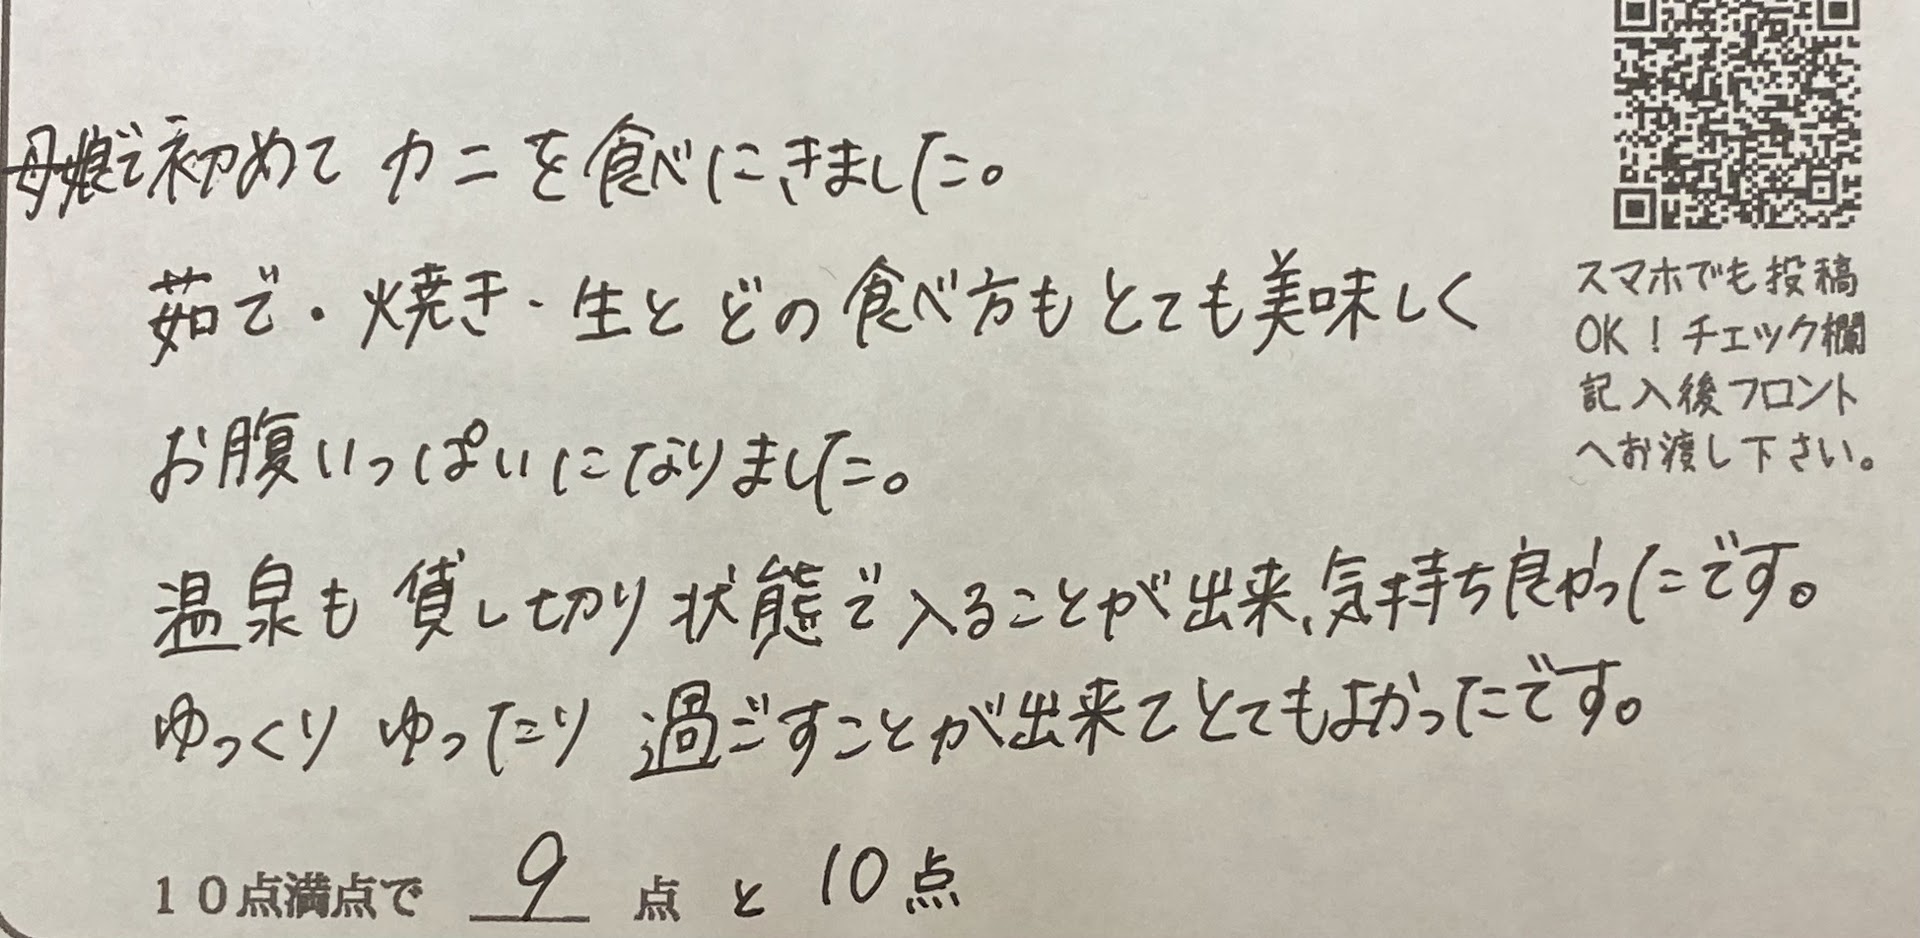 母娘で初めて カニを食べにきました。
茹で・焼き・生と どの食べ方も とても美味しく
お腹いっぱいになりました。
温泉も 貸し切り状態で入ることが出来、気持ち良かったです。
ゆっくり ゆったり 過ごすことが出来てとてもよかったです。
10点満点で 9 点 と 10点
スマホでも投稿
OK！チェック欄
記入後フロント
へお渡し下さい。